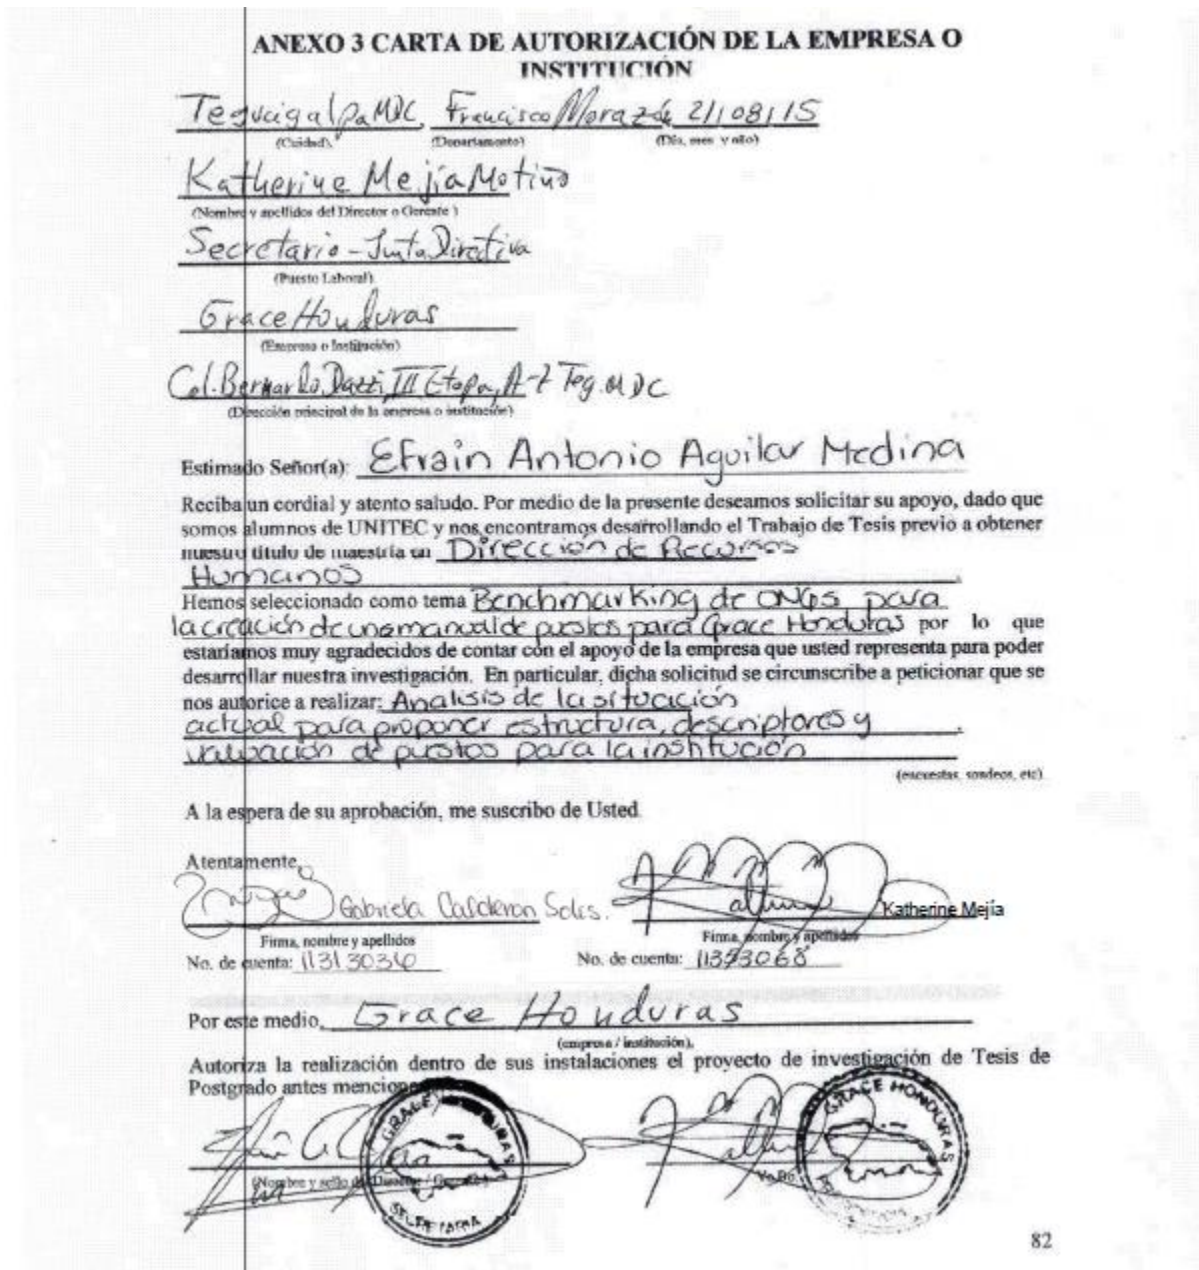 ANEXO 3 CARTA DE AUTORIZACIÓN DE LA EMPRESA O
INSTITUCIÓN
Tegucigalpa MDC, Francisco Morazán 21/08/15
(Cuidad), (Departamento) (Día, mes y año)
Katherine Mejía Motiño
(Nombre y apellidos del Director o Gerente )
Secretario - Junta Directiva
(Puesto Laboral)
Grace Honduras
(Empresa o Institución)
Col. Bernardo Dazzi, III Etapa, A-7 Teg. MDC
(Dirección principal de la empresa o institución)
Estimado Señor(a): Efrain Antonio Aguilar Medina
Reciba un cordial y atento saludo. Por medio de la presente deseamos solicitar su apoyo, dado que
somos alumnos de UNITEC y nos encontramos desarrollando el Trabajo de Tesis previo a obtener
nuestro título de maestría en Dirección de Recursos
Humanos.
Hemos seleccionado como tema Benchmarking de ONGs para
la creación de un manual de puestos para Grace Honduras por lo que
estaríamos muy agradecidos de contar con el apoyo de la empresa que usted representa para poder
desarrollar nuestra investigación. En particular, dicha solicitud se circunscribe a peticionar que se
nos autorice a realizar: Analisis de la situación
actual para proponer estructura, descriptores y
valuación de puestos para la institución
(encuestas, sondeos, etc).
A la espera de su aprobación, me suscribo de Usted.
Atentamente,
Gabriela Calderon Solis. Katherine Mejía
Firma, nombre y apellidos Firma, nombre y apellidos
No. de cuenta: 11313036 No. de cuenta: 11353068
Por este medio, Grace Honduras
(empresa / institución),
Autoriza la realización dentro de sus instalaciones el proyecto de investigación de Tesis de
Postgrado antes
(Nombre y sello Vo.Bo.
GRACE HONDURAS
SECRETARIA
GRACE HONDURAS
82